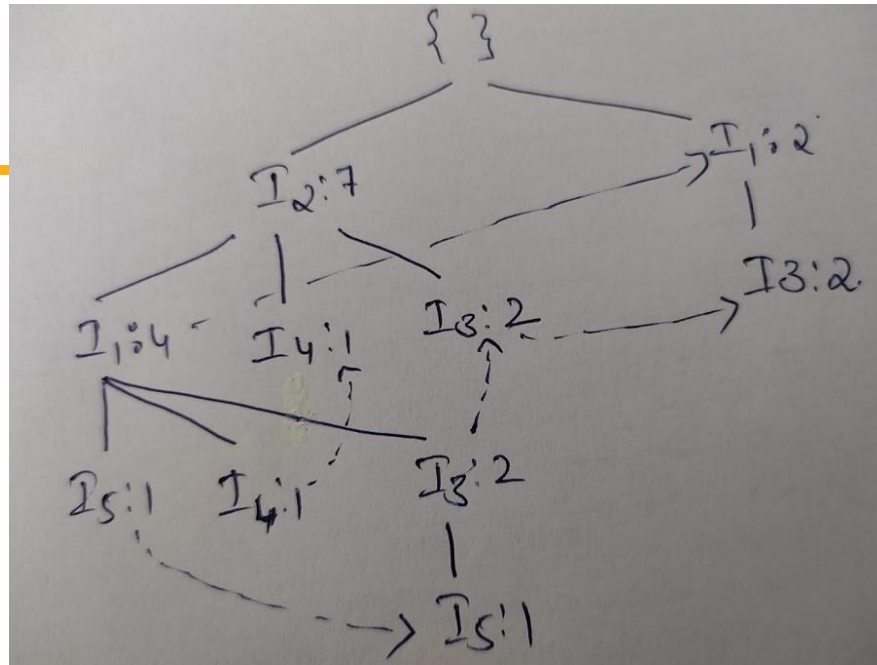 { }
I₂:7 I₁:2
I₁:4 I₄:1 I₃:2 I3:2
I₅:1 I₄:1 I₃:2
I₅:1